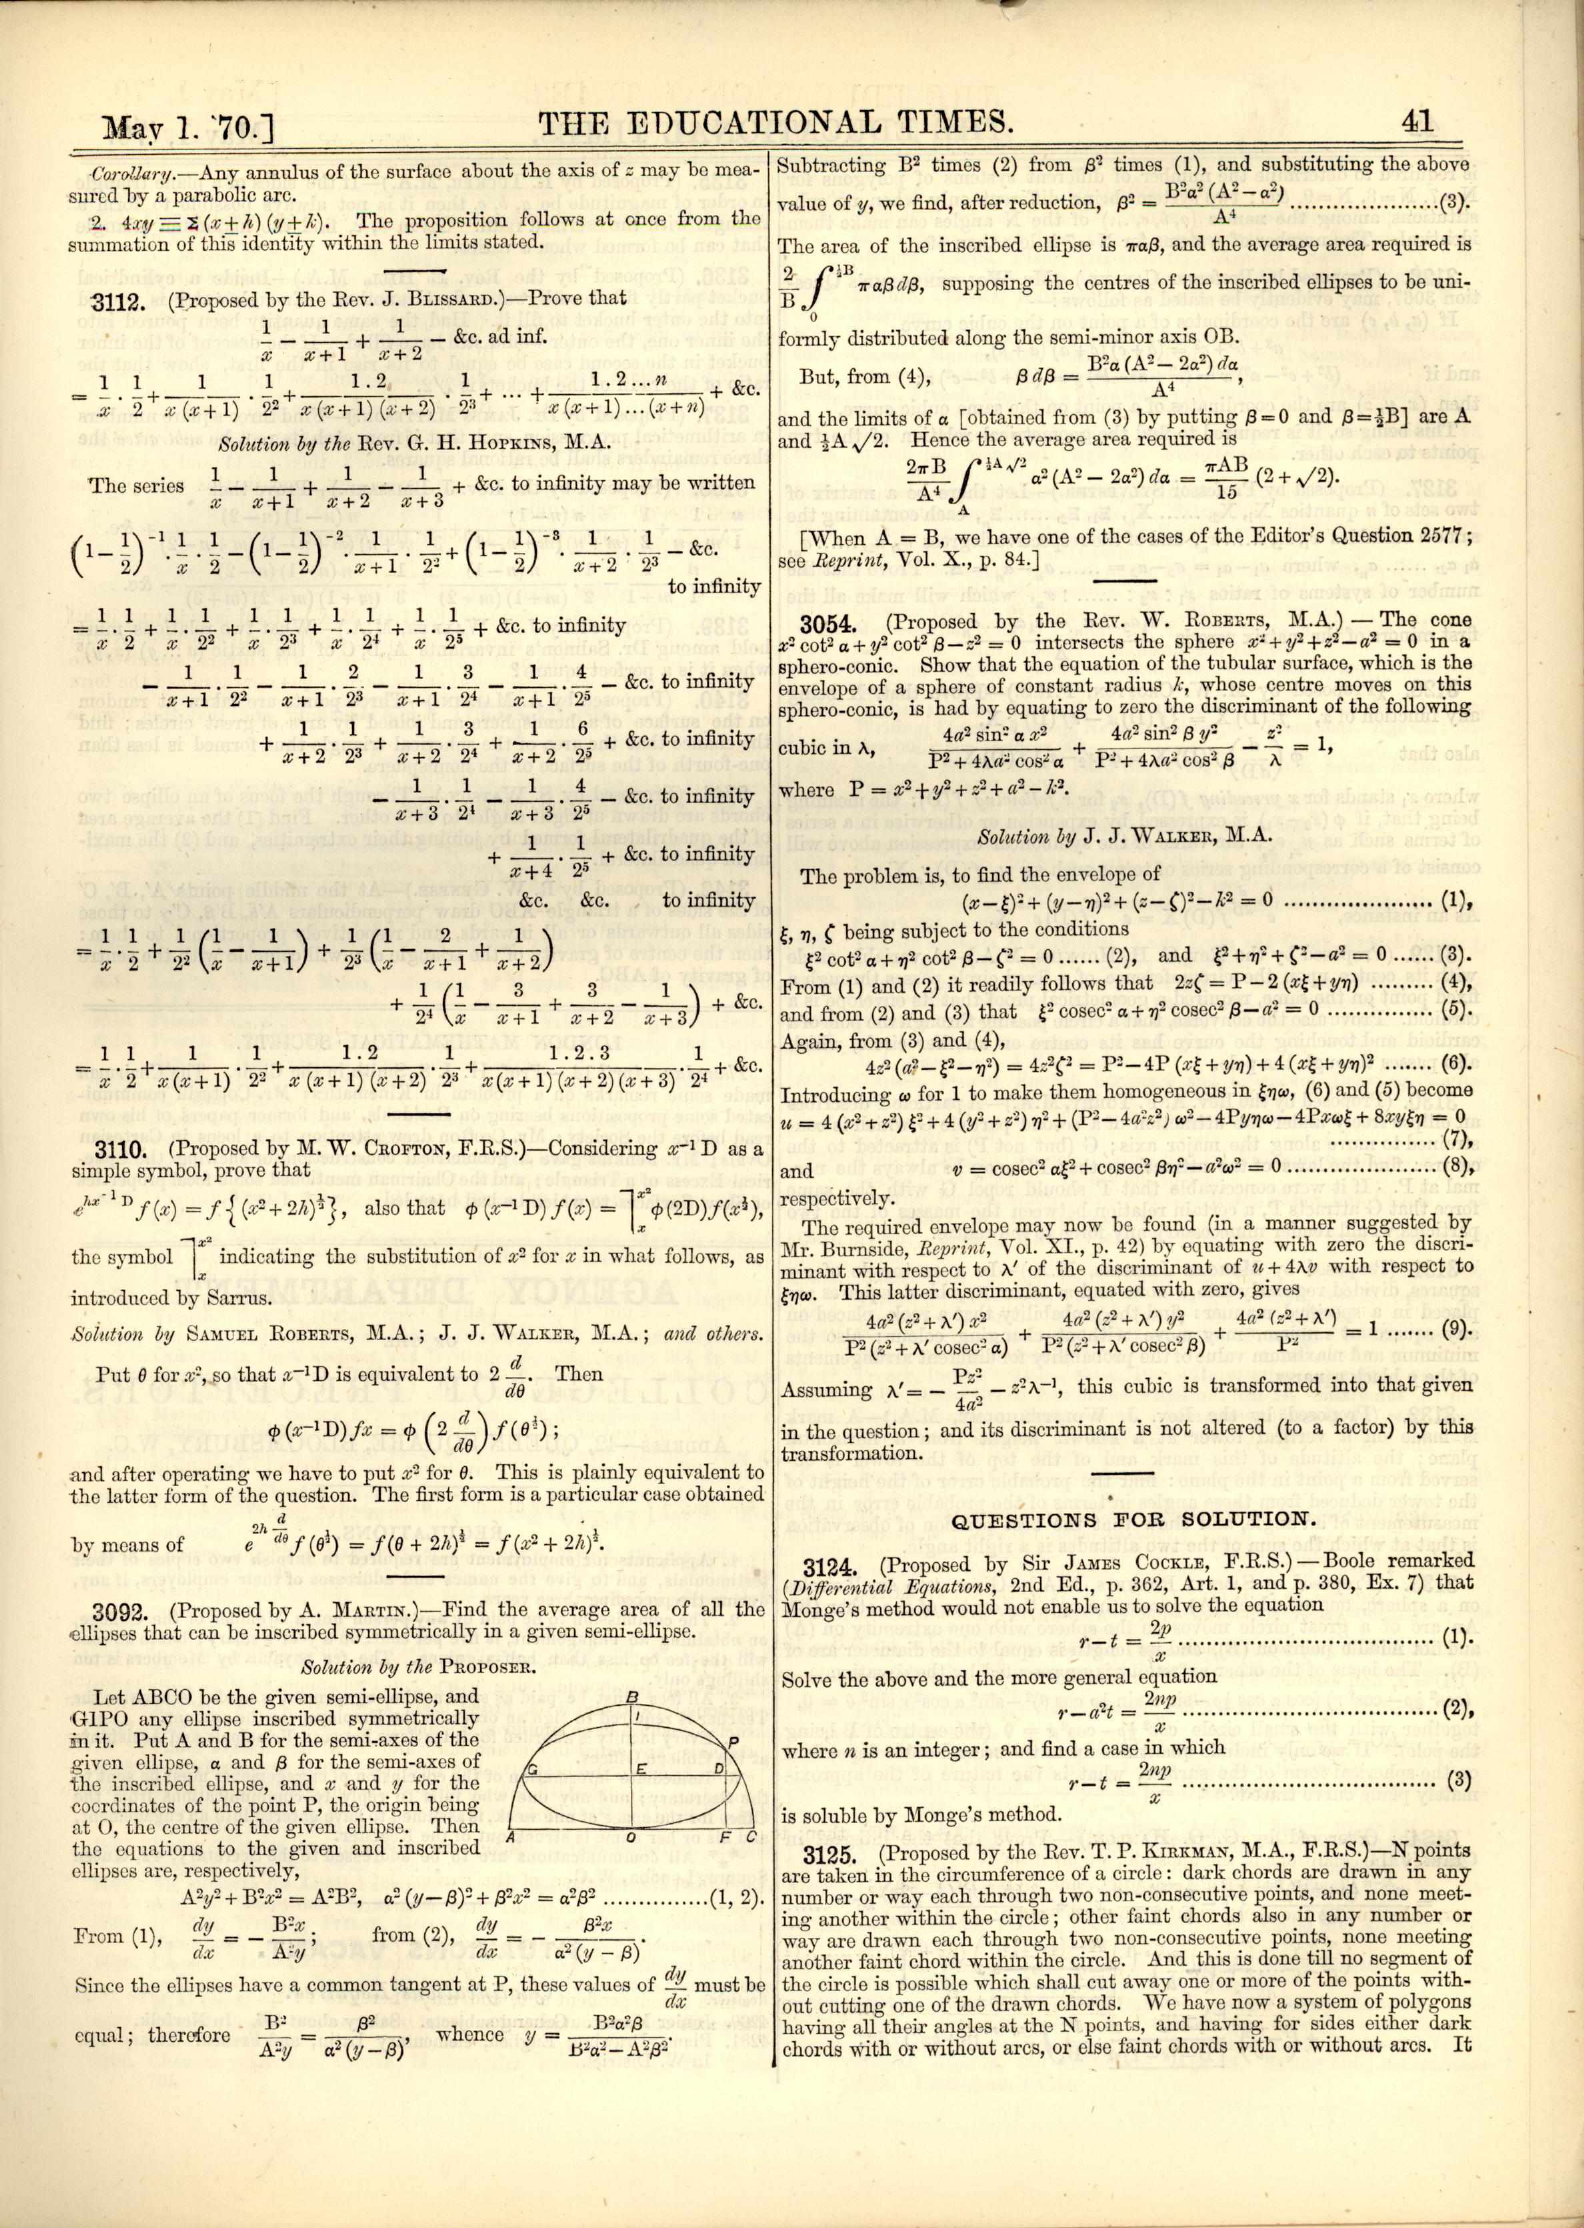 May 1. '70.] THE EDUCATIONAL TIMES. 41
Corollary.—Any annulus of the surface about the axis of z may be mea-
sured by a parabolic arc.
2. 4xy ≡ Σ (x ± h) (y ± k). The proposition follows at once from the
summation of this identity within the limits stated.
3112. (Proposed by the Rev. J. BLISSARD.)—Prove that
1/x − 1/(x+1) + 1/(x+2) − &c. ad inf.
= 1/x . 1/2 + 1/(x(x+1)) . 1/2² + 1.2/(x(x+1)(x+2)) . 1/2³ + ... + 1.2...n/(x(x+1)...(x+n)) + &c.
Solution by the Rev. G. H. HOPKINS, M.A.
The series 1/x − 1/(x+1) + 1/(x+2) − 1/(x+3) + &c. to infinity may be written
(1−1/2)⁻¹ . 1/x . 1/2 − (1−1/2)⁻² . 1/(x+1) . 1/2² + (1−1/2)⁻³ . 1/(x+2) . 1/2³ − &c.
to infinity
= 1/x . 1/2 + 1/x . 1/2² + 1/x . 1/2³ + 1/x . 1/2⁴ + 1/x . 1/2⁵ + &c. to infinity
− 1/(x+1) . 1/2² − 1/(x+1) . 2/2³ − 1/(x+1) . 3/2⁴ − 1/(x+1) . 4/2⁵ − &c. to infinity
+ 1/(x+2) . 1/2³ + 1/(x+2) . 3/2⁴ + 1/(x+2) . 6/2⁵ + &c. to infinity
− 1/(x+3) . 1/2⁴ − 1/(x+3) . 4/2⁵ − &c. to infinity
+ 1/(x+4) . 1/2⁵ + &c. to infinity
&c. &c. to infinity
= 1/x . 1/2 + 1/2² (1/x − 1/(x+1)) + 1/2³ (1/x − 2/(x+1) + 1/(x+2))
+ 1/2⁴ (1/x − 3/(x+1) + 3/(x+2) − 1/(x+3)) + &c.
= 1/x . 1/2 + 1/(x(x+1)) . 1/2² + 1.2/(x(x+1)(x+2)) . 1/2³ + 1.2.3/(x(x+1)(x+2)(x+3)) . 1/2⁴ + &c.
3110. (Proposed by M. W. CROFTON, F.R.S.)—Considering x⁻¹D as a
simple symbol, prove that
e^(hx⁻¹D) f(x) = f{(x²+2h)^½}, also that φ(x⁻¹D) f(x) = ⌉ₓ^x² φ(2D) f(x^½),
the symbol ⌉ₓ^x² indicating the substitution of x² for x in what follows, as
introduced by Sarrus.
Solution by SAMUEL ROBERTS, M.A.; J. J. WALKER, M.A.; and others.
Put θ for x², so that x⁻¹D is equivalent to 2 d/dθ. Then
φ(x⁻¹D) fx = φ(2 d/dθ) f(θ^½);
and after operating we have to put x² for θ. This is plainly equivalent to
the latter form of the question. The first form is a particular case obtained
by means of e^(2h d/dθ) f(θ^½) = f(θ + 2h)^½ = f(x² + 2h)^½.
3092. (Proposed by A. MARTIN.)—Find the average area of all the
ellipses that can be inscribed symmetrically in a given semi-ellipse.
Solution by the PROPOSER.
Let ABCO be the given semi-ellipse, and
GIPO any ellipse inscribed symmetrically
in it. Put A and B for the semi-axes of the
given ellipse, α and β for the semi-axes of
the inscribed ellipse, and x and y for the
coordinates of the point P, the origin being
at O, the centre of the given ellipse. Then
the equations to the given and inscribed
ellipses are, respectively,
B
I
P
G E D
A O F C
A²y² + B²x² = A²B², α²(y−β)² + β²x² = α²β² ...............(1, 2).
From (1), dy/dx = − B²x/A²y; from (2), dy/dx = − β²x/(α²(y − β)).
Since the ellipses have a common tangent at P, these values of dy/dx must be
equal; therefore B²/A²y = β²/(α²(y−β)), whence y = B²α²β/(B²α²−A²β²).
Subtracting B² times (2) from β² times (1), and substituting the above
value of y, we find, after reduction, β² = B²α²(A²−α²)/A⁴ .....................(3).
The area of the inscribed ellipse is παβ, and the average area required is
2/B ∫₀^½B παβdβ, supposing the centres of the inscribed ellipses to be uni-
formly distributed along the semi-minor axis OB.
But, from (4), βdβ = B²α(A²−2α²)dα/A⁴,
and the limits of α [obtained from (3) by putting β=0 and β=½B] are A
and ½A√2. Hence the average area required is
2πB/A⁴ ∫_A^½A√2 α²(A²−2α²)dα = πAB/15 (2+√2).
[When A = B, we have one of the cases of the Editor's Question 2577;
see Reprint, Vol. X., p. 84.]
3054. (Proposed by the Rev. W. ROBERTS, M.A.) — The cone
x² cot² α + y² cot² β − z² = 0 intersects the sphere x²+y²+z²−a² = 0 in a
sphero-conic. Show that the equation of the tubular surface, which is the
envelope of a sphere of constant radius k, whose centre moves on this
sphero-conic, is had by equating to zero the discriminant of the following
cubic in λ, 4a² sin² α x²/(P²+4λa² cos² α) + 4a² sin² β y²/(P²+4λa² cos² β) − z²/λ = 1,
where P = x²+y²+z²+a²−k².
Solution by J. J. WALKER, M.A.
The problem is, to find the envelope of
(x−ξ)²+(y−η)²+(z−ζ)²−k² = 0 ..................... (1),
ξ, η, ζ being subject to the conditions
ξ² cot² α+η² cot² β−ζ² = 0 ...... (2), and ξ²+η²+ζ²−a² = 0 ...... (3).
From (1) and (2) it readily follows that 2zζ = P−2(xξ+yη) ......... (4),
and from (2) and (3) that ξ² cosec² α+η² cosec² β−a² = 0 ............... (5).
Again, from (3) and (4),
4z²(a²−ξ²−η²) = 4z²ζ² = P²−4P(xξ+yη)+4(xξ+yη)² ....... (6).
Introducing ω for 1 to make them homogeneous in ξηω, (6) and (5) become
u = 4(x²+z²)ξ²+4(y²+z²)η²+(P²−4a²z²)ω²−4Pyηω−4Pxωξ+8xyξη = 0
............... (7),
and v = cosec² αξ²+cosec² βη²−a²ω² = 0 ..................... (8),
respectively.
The required envelope may now be found (in a manner suggested by
Mr. Burnside, Reprint, Vol. XI., p. 42) by equating with zero the discri-
minant with respect to λ′ of the discriminant of u+4λv with respect to
ξηω. This latter discriminant, equated with zero, gives
4a²(z²+λ′)x²/(P²(z²+λ′cosec² α)) + 4a²(z²+λ′)y²/(P²(z²+λ′cosec² β)) + 4a²(z²+λ′)/P² = 1 ....... (9).
Assuming λ′ = − Pz²/4a² − z²λ⁻¹, this cubic is transformed into that given
in the question; and its discriminant is not altered (to a factor) by this
transformation.
QUESTIONS FOR SOLUTION.
3124. (Proposed by Sir JAMES COCKLE, F.R.S.) — Boole remarked
(Differential Equations, 2nd Ed., p. 362, Art. 1, and p. 380, Ex. 7) that
Monge's method would not enable us to solve the equation
r−t = 2p/x .................................... (1).
Solve the above and the more general equation
r−a²t = 2np/x .................................... (2),
where n is an integer; and find a case in which
r−t = 2np/x .................................... (3)
is soluble by Monge's method.
3125. (Proposed by the Rev. T. P. KIRKMAN, M.A., F.R.S.)—N points
are taken in the circumference of a circle: dark chords are drawn in any
number or way each through two non-consecutive points, and none meet-
ing another within the circle; other faint chords also in any number or
way are drawn each through two non-consecutive points, none meeting
another faint chord within the circle. And this is done till no segment of
the circle is possible which shall cut away one or more of the points with-
out cutting one of the drawn chords. We have now a system of polygons
having all their angles at the N points, and having for sides either dark
chords with or without arcs, or else faint chords with or without arcs. It